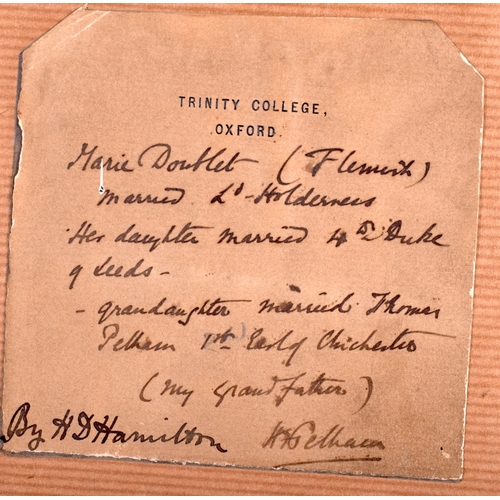 TRINITY COLLEGE,
OXFORD.
Marie Doublet (Flemish)
married Ld Holderness
Her daughter married 4th Duke
of Leeds -
- grandaughter married Thomas
Pelham 1st Earl of Chichester
(my grandfather)
By H D Hamilton HPelham